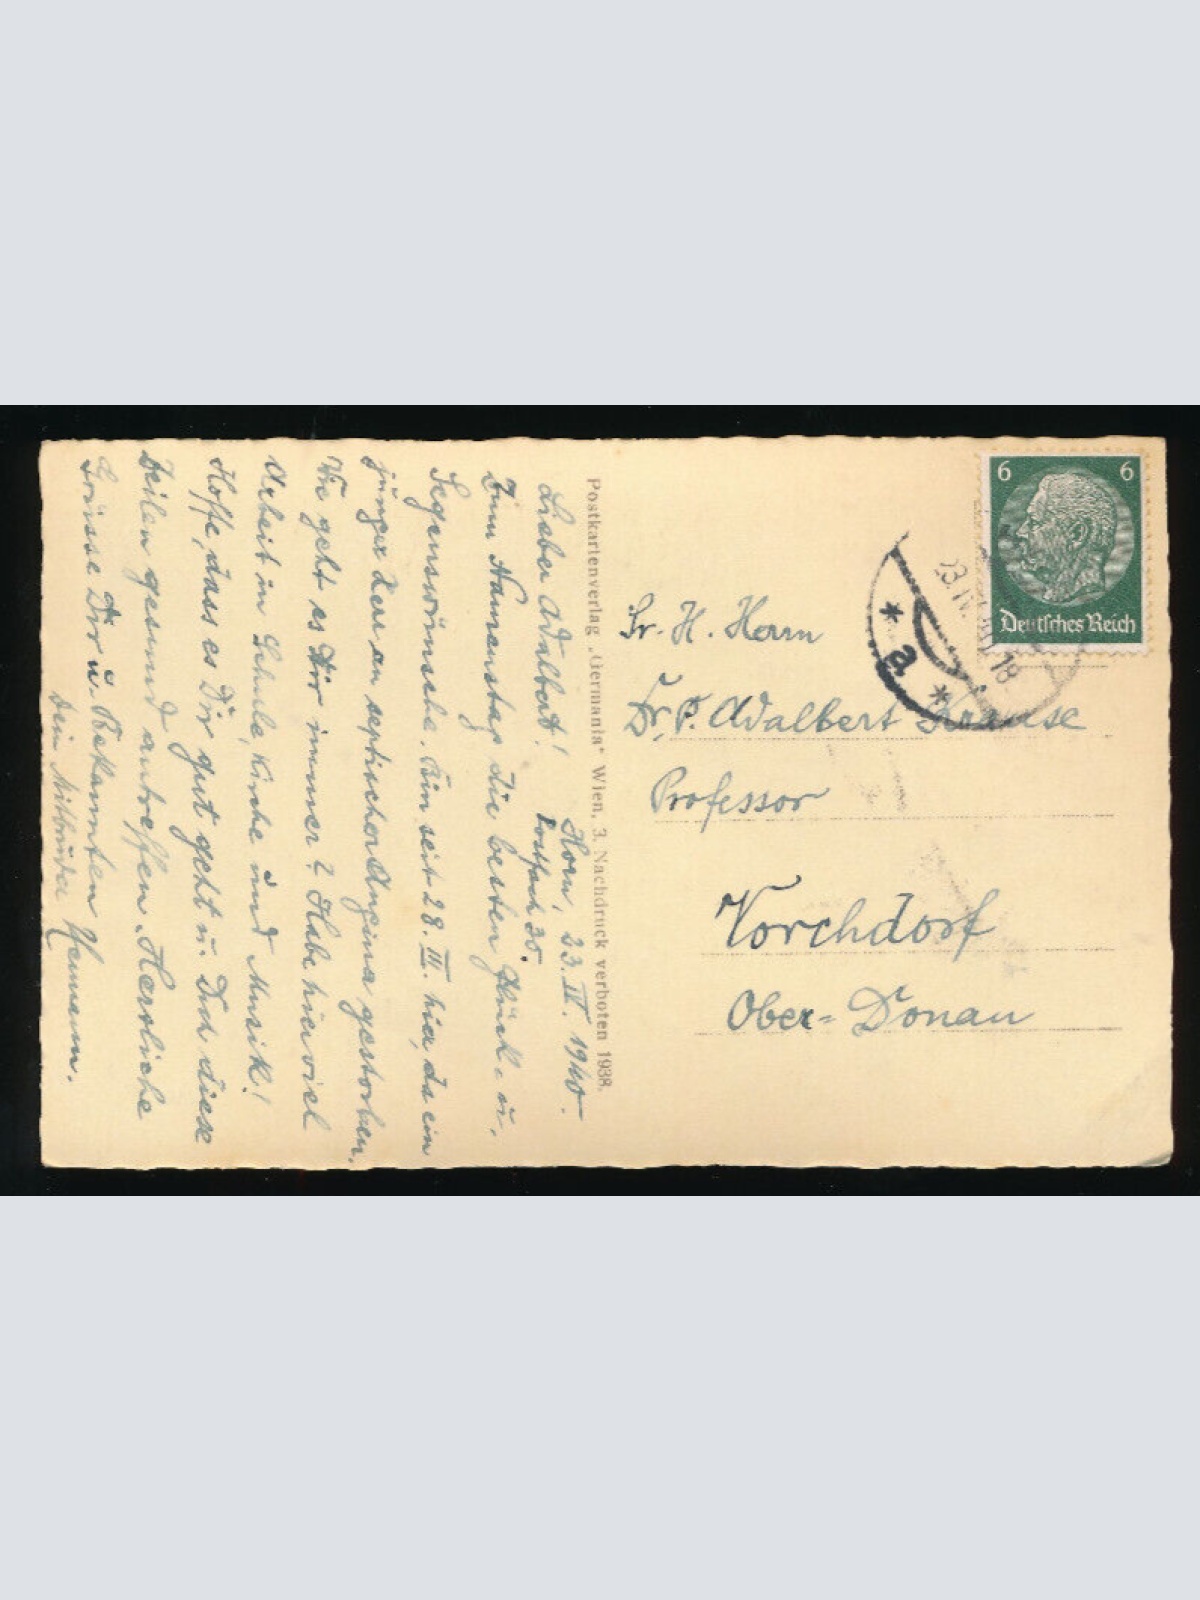 Horn, 23. IV. 1940.
Postfach 35.
Lieber Adalbert!
Zum Namenstag die besten Glück- u.
Segenswünsche. Bin seit 28. III. hier, da ein
junger Herr an septischer Angina gestorben.
Wie geht es Dir immer? Habe hier viel
Arbeit in Schule, Kirche und Musik!
Hoffe, dass es Dir gut geht u. Dich diese
Zeilen gesund antreffen. Herzliche
Grüsse Dir u. Bekannten
Dein Mitbruder Hermann.
Postkartenverlag „Germania" Wien, 3. Nachdruck verboten 1938.
6 6
Deutsches Reich
23.IV. 18
* a *
Sr. H. Herrn
Dr. P. Adalbert Krause
Professor
Vorchdorf
Ober-Donau